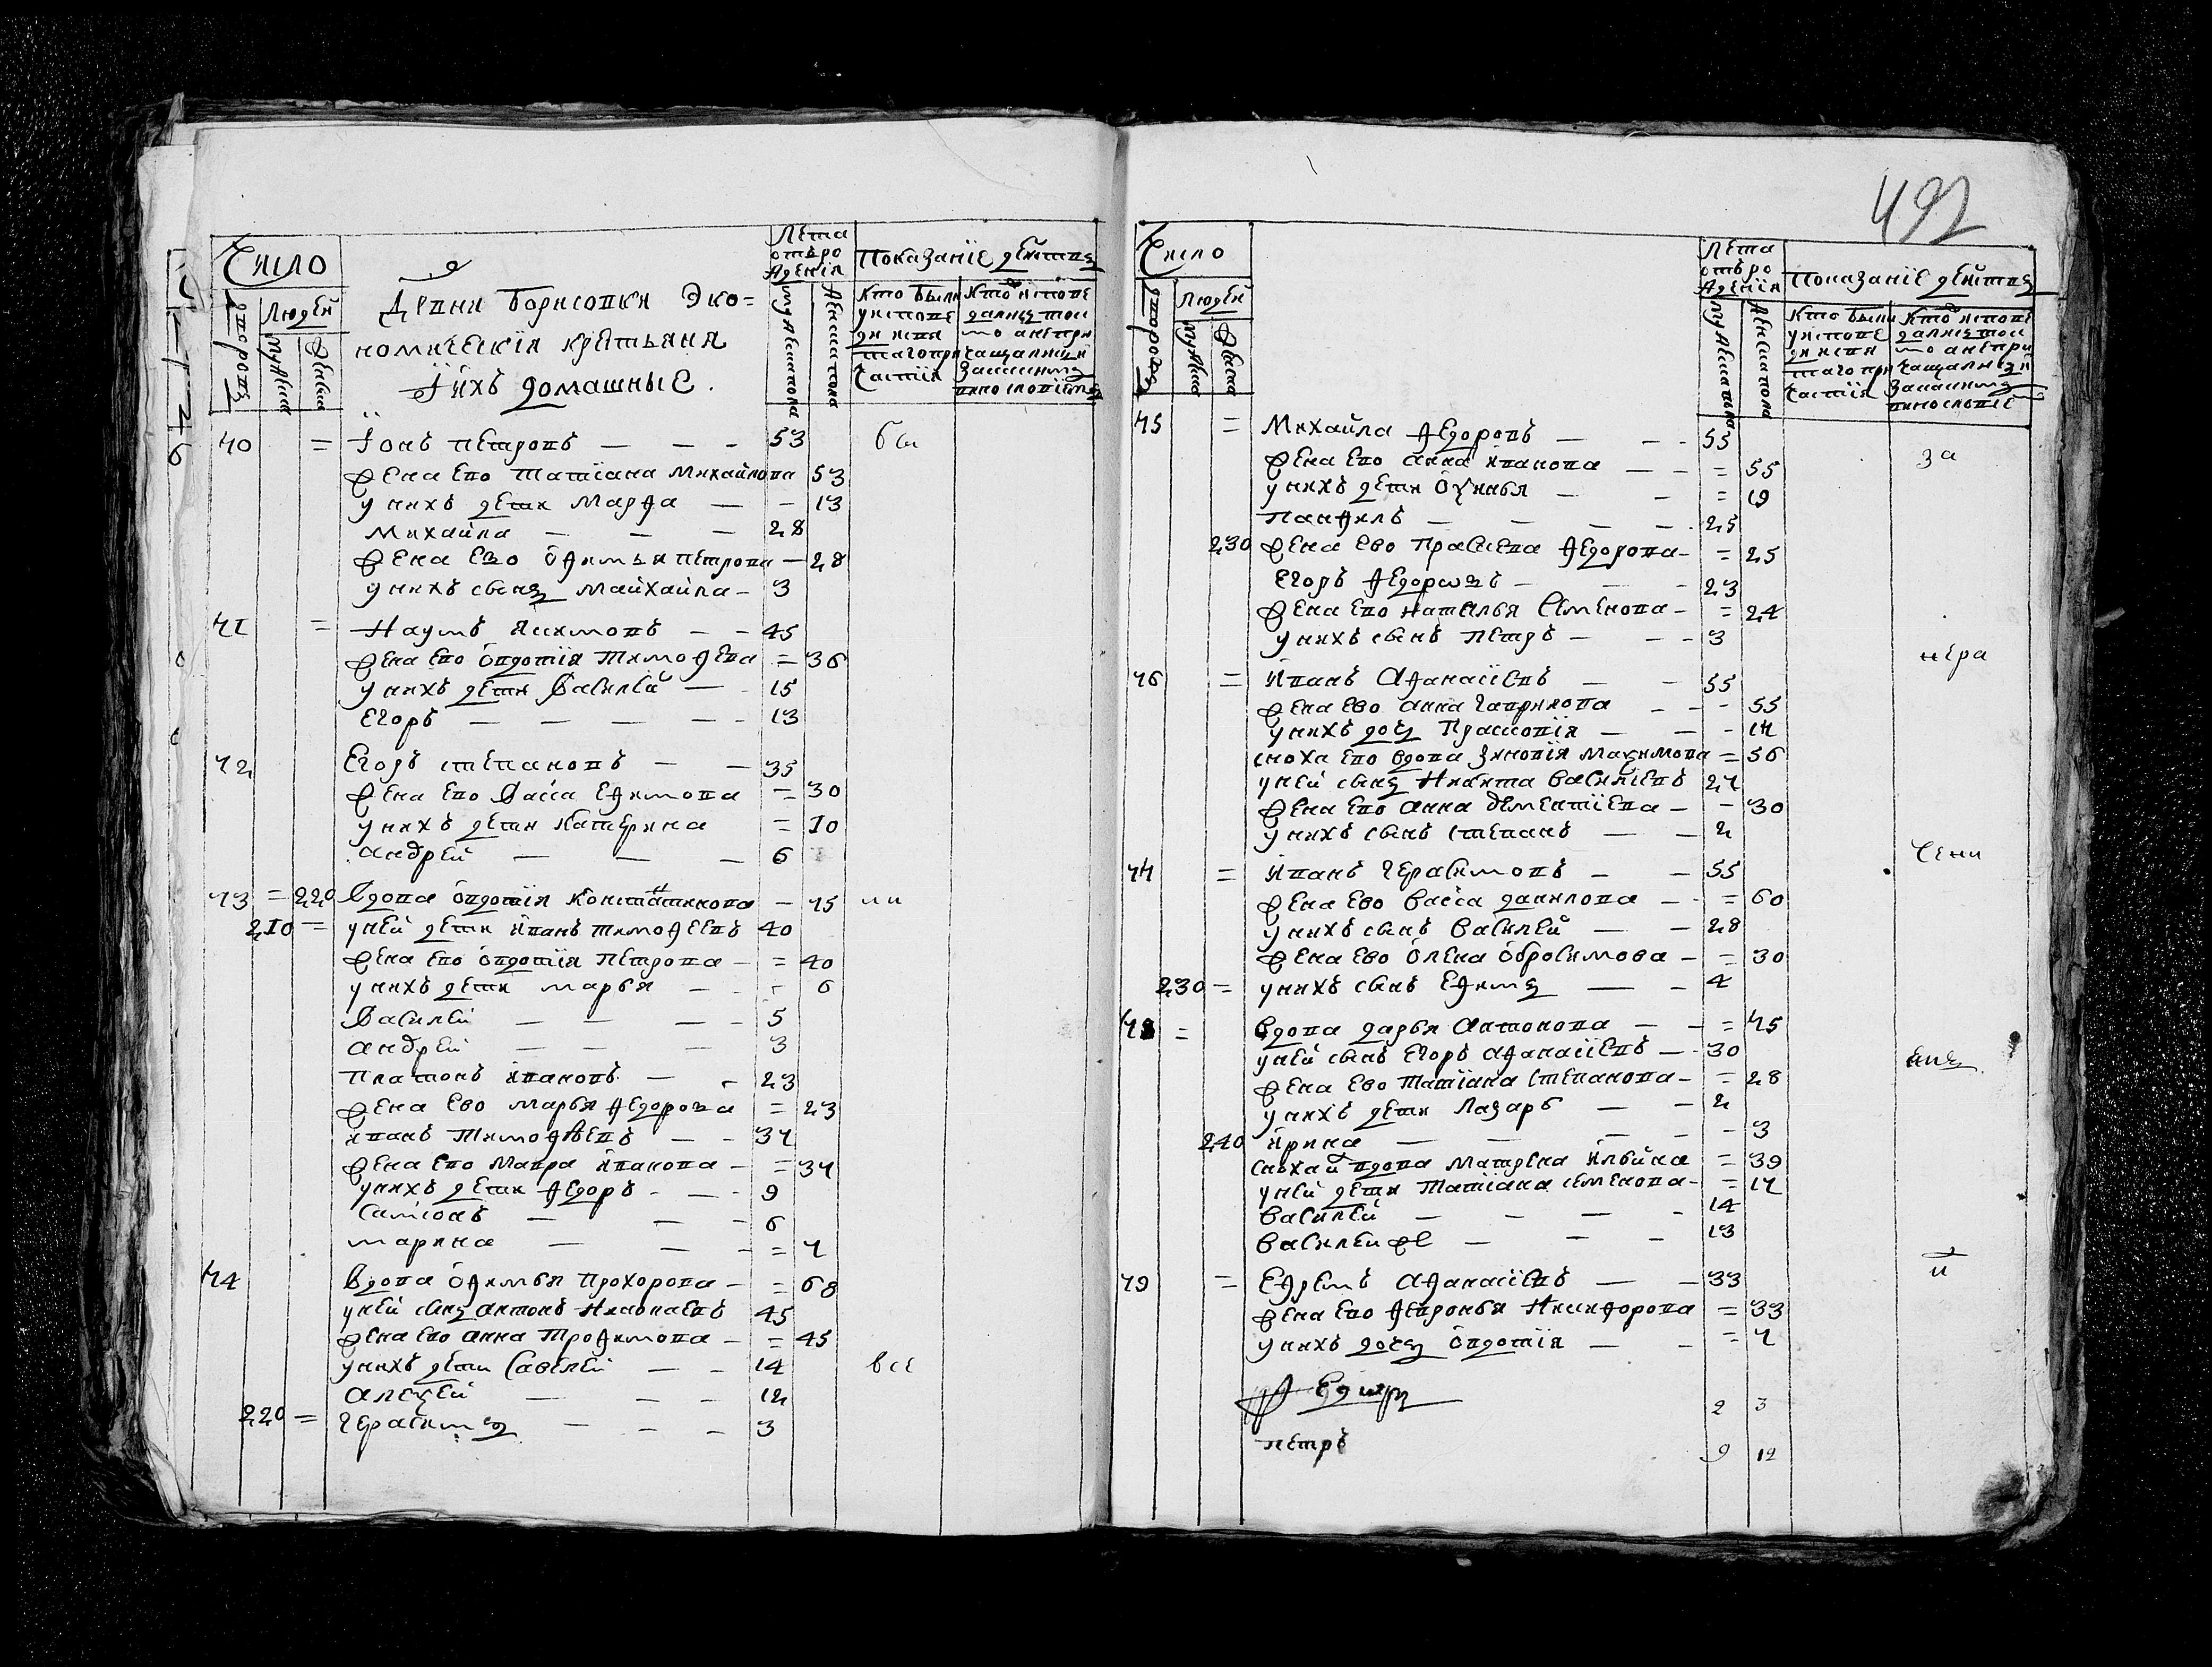 492
Число
Дворовъ
Людей
Мужеска
Женска
Девни Борисовки Эко=
номическия крестьяня
Iихъ домашные.
Лета
отъ ро
жденiя
мужеска пола
женска пола
Показанiе действъ
Кто были
у испове
ди и свя
таго при
частiя
Кто испове
дались токи
мо а не при
чащались и
за какимъ
виновствiемъ
40 = Iонъ Петровъ — — - 53 бы
жена ево Татiана Михайлова 53
у нихъ дети Марфа — - 13
Михайла — — — 28
жена ево Офимья Петрова — 28
у нихъ сынъ Майхайла — 3
41 = Наумъ Якимовъ — - 45
жена ево Овдотiя Тимофева = 36
у нихъ дети Василей — - 15
Егоръ — — — — - 13
42 Егоръ Степановъ — — 35
жена ево Васса Ефимова = 30
у нихъ дети Катерина = 10
Андрей — — — 6
43 = 220 Вдова Овдотiя Констатинова — 75 ли
210 = у ней дети Иванъ Тимофеевъ 40
жена ево Овдотiя Петрова — = 40
у нихъ дети Марья — - 6
Василей — — — - 5
Андрей — — — 3
Платонъ Ивановъ — - 23
жена ево Марья Федорова = 23
Иванъ Тимофеевъ — - 37
жена ево Мавра Иванова — = 37
у нихъ дети Федоръ - — - 9
Самсонъ — — - 6
Марина — — - = 7
44 Вдова Офимья Прохорова — = 68
у ней сынъ Антонъ Николаевъ 45
жена ево Анна Трофимова — = 45
у нихъ дети Савелей — — 14 все
Алексей — — — 12
220 = Герасимъ — — — 3
Число
Дворовъ
Людей
Мужеска
Женска
Лета
отъ ро
жденiя
мужеска пола
женска пола
Показанiе действъ
Кто были
у испове
ди и свя
таго при
частiя
Кто испове
дались токи
мо а не при
чащались и
за какимъ
виновствiе
45 = Михайла Федоровъ — - - 55 за
жена ево Анна Иванова — - = 55
у нихъ дети — - = 19
Панфилъ — — — - 25
230 жена ево Праскева Федорова — = 25
Егоръ Федоровъ — — - 23
жена ево Наталья Семенова — = 24
у нихъ сынъ Петръ — - - 3 нера
46 = Иванъ Афанасiевъ — - 55
жена ево Анна Гаврилова - - - 55
у нихъ дочь Прасковiя — - - 17
сноха ево вдова Зиновiя Максимова = 56
у ней сынъ Никита Васильевъ 27
жена ево Анна Дементiева — - 30
у нихъ сынъ Степанъ — - 2 чени
47 = Иванъ Герасимовъ — - 55
жена ево Васса Данилова — - = 60
у нихъ сынъ Василей — - 28
жена ево Олена Обросимова — = 30
230 = у нихъ сынъ Ефимъ — - 4
48 = Вдова Дарья Антонова — - = 75
у ней сынъ Егоръ Афанасiевъ — - 30 емъ
жена ево Татiана Степанова — = 28
у нихъ дети Лазарь — - 2
240 Ирина — — — - - 3
снохаи вдова Матрена Ильина = 39
у ней дети Татiана Семенова — = 17
Василей — - — - 14
Василей же — — — 13
49 = Ефремъ Афанасiевъ — - 33 и
жена ево Февронья Никифорова = 33
у нихъ дочь Овдотiя — - = 7
2 3
Петръ 9 12